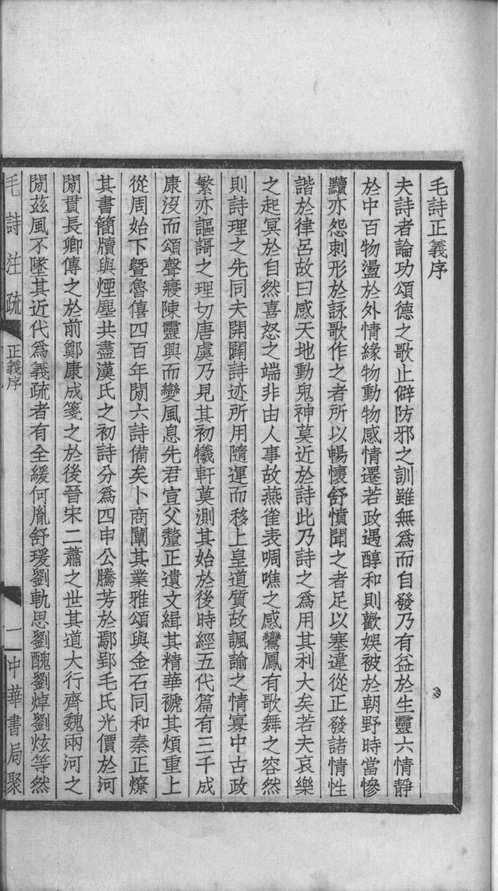 毛詩正義序
夫詩者論功頌德之歌止僻防邪之訓雖無爲而自發乃有益於生靈六情靜
於中百物盪於外情緣物動物感情遷若政遇醇和則歡娛被於朝野時當慘
黷亦怨刺形於詠歌作之者所以暢懷舒憤聞之者足以塞違從正發諸情性
諧於律呂故曰感天地動鬼神莫近於詩此乃詩之爲用其利大矣若夫哀樂
之起冥於自然喜怒之端非由人事故燕雀表啁噍之感鸞鳳有歌舞之容然
則詩理之先同夫開闢詩迹所用隨運而移上皇道質故諷諭之情寡中古政
繁亦謳謌之理切唐虞乃見其初犧軒莫測其始於後時經五代篇有三千成
康沒而頌聲寢陳靈興而變風息先君宣父釐正遺文緝其精華褫其煩重上
從周始下暨魯僖四百年閒六詩備矣卜商闡其業雅頌與金石同和秦正燎
其書簡牘與煙塵共盡漢氏之初詩分爲四申公騰芳於鄢郢毛氏光價於河
閒貫長卿傳之於前鄭康成箋之於後晉宋二蕭之世其道大行齊魏兩河之
閒茲風不墜其近代爲義疏者有全緩何胤舒瑗劉軌思劉醜劉焯劉炫等然
毛詩注疏
正義序
一
中華書局聚